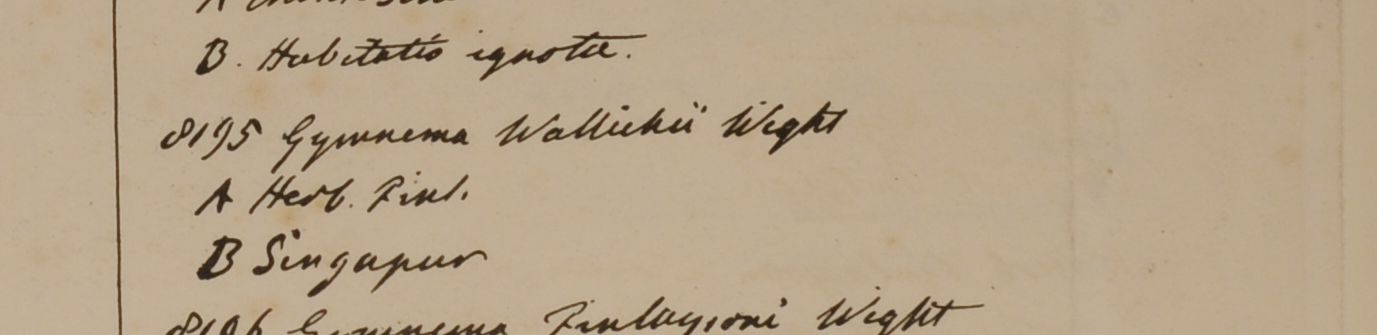 B. Habitatio ignota.
8195 Gymnema Wallichii Wight
A Herb. Finl.
B Singapur
8196 Gymnema Finlaysoni Wight